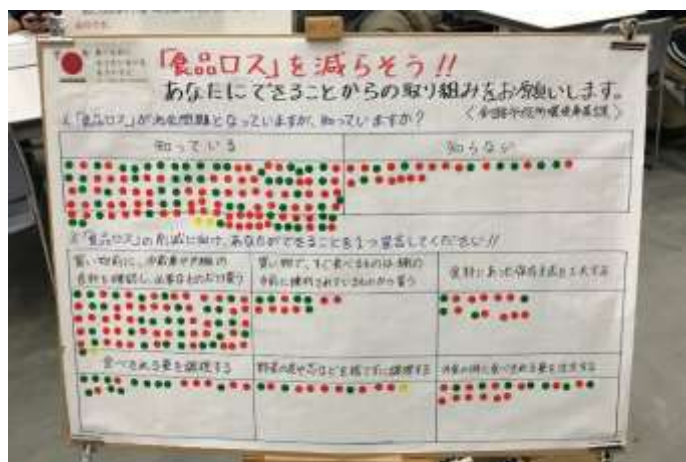 「食品ロス」を減らそう!!
あなたにできることからの取り組みをお願いします。
1.「食品ロス」が社会問題となっていますが、知っていますか?
知っている
知らない
2.「食品ロス」の削減に向け、あなたができることを1つ宣言してください!!
買い物前に、冷蔵庫や戸棚の
食材を確認し、必要なものだけ買う
買い物で、すぐ食べるものは棚の
手前に陳列されているものから買う
食材にあった保存方法を工夫する
食べきれる量を調理する
野菜の皮や芯などを捨てずに調理する
外食の時に食べきれる量を注文する